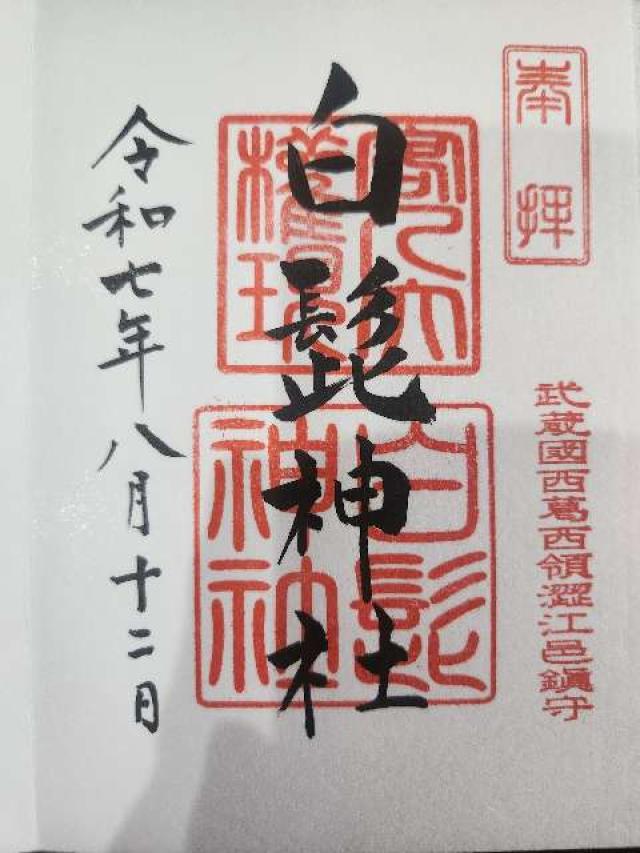 奉拝
武蔵國西葛西領澀江邑鎭守
白髭神社
客人大
權現
白髭
神社
令和七年八月十二日